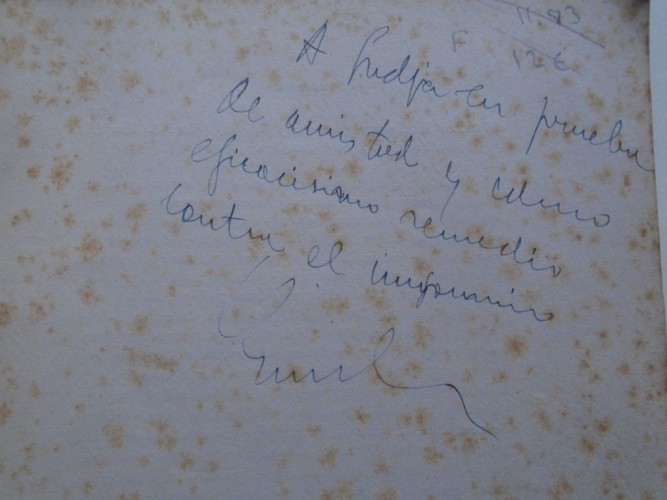 11.93
F 12€
A en prueba
de amistad y como
eficacisimo remedio
contra el insomnio